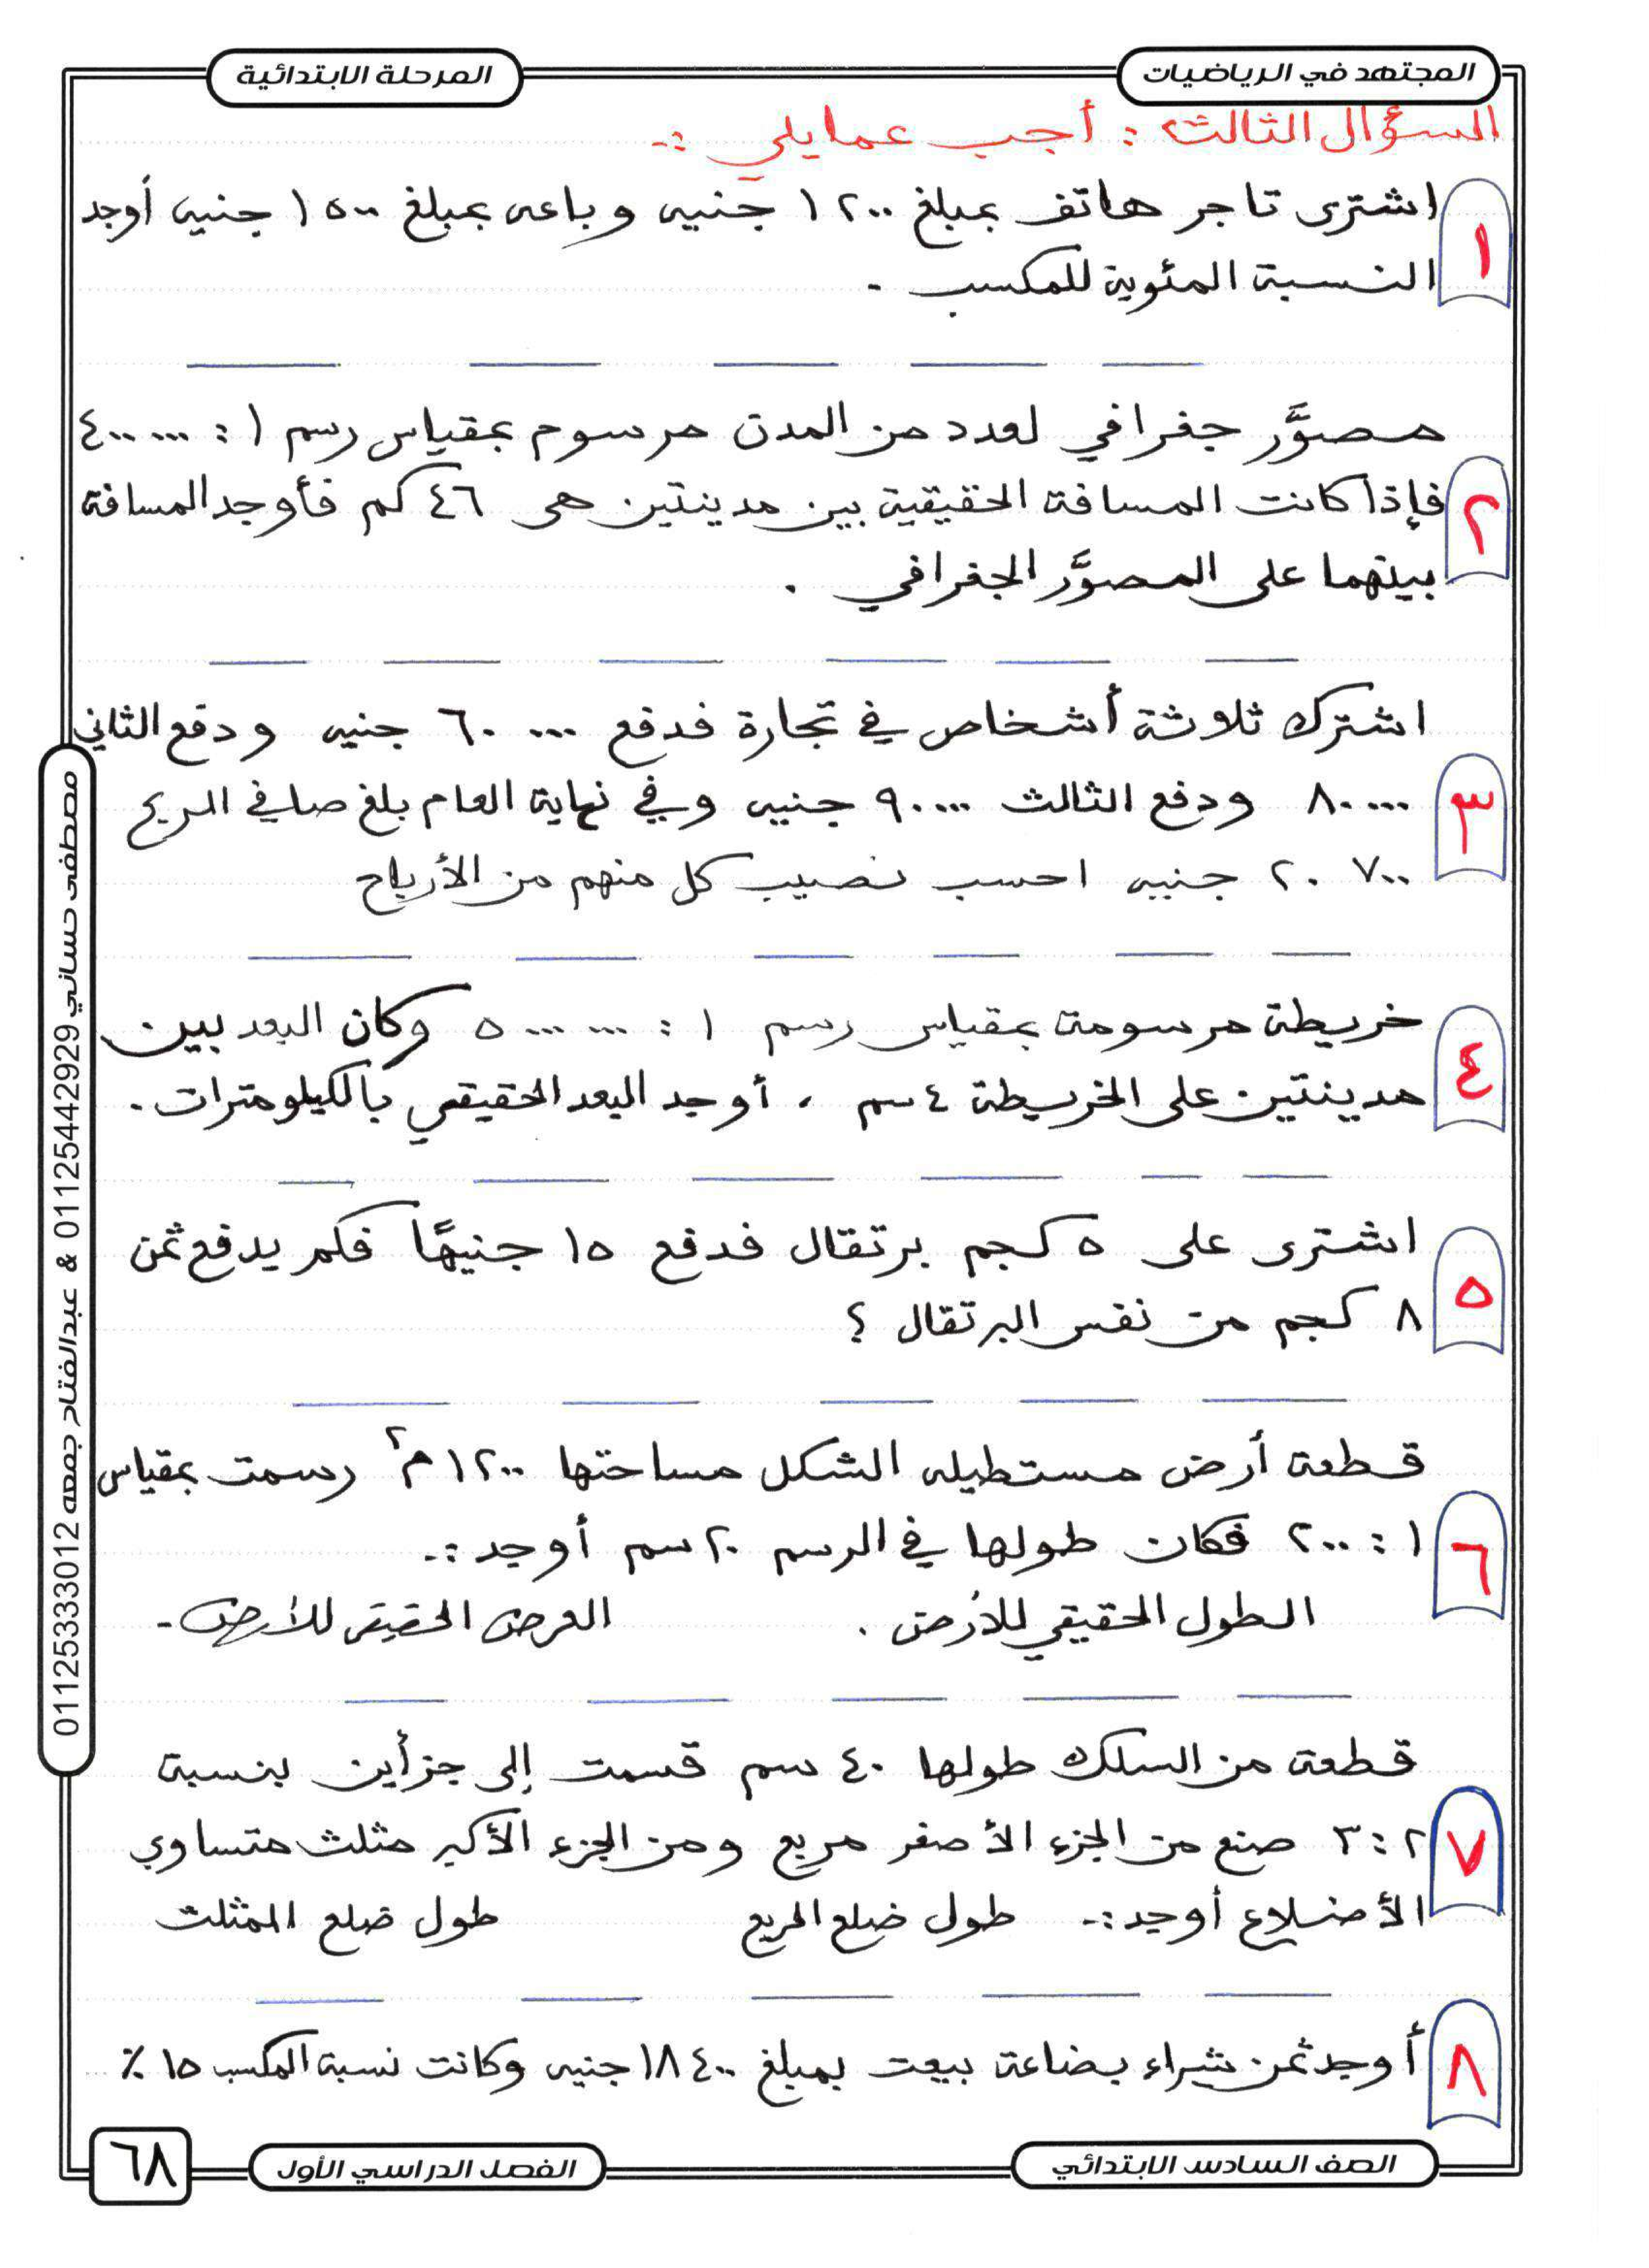 المجتهد في الرياضيات
المرحلة الابتدائية
السؤال الثالث : أجب عما يلي :-
١
اشترى تاجر هاتف بمبلغ ١٢٠٠ جنيه وباعه بمبلغ ١٥٠٠ جنيه أوجد
النسبة المئوية للمكسب -
٢
مصوَّر جغرافي لعدد من المدن مرسوم بمقياس رسم ١ : ٤٠٠٠٠٠
فإذا كانت المسافة الحقيقية بين مدينتين هى ٤٦ كم فأوجد المسافة
بينهما على المصوَّر الجغرافي .
٣
اشترك ثلاثة أشخاص في تجارة فدفع ٦٠٠٠٠ جنيه ودفع الثاني
٨٠٠٠٠ ودفع الثالث ٩٠٠٠٠ جنيه وفي نهاية العام بلغ صافي الربح
٢٠٧٠٠ جنيه احسب نصيب كل منهم من الأرباح
٤
خريطة مرسومة بمقياس رسم ١ : ٥٠٠٠٠٠٠ وكان البعد بين
مدينتين على الخريطة ٤ سم ، أوجد البعد الحقيقي بالكيلومترات .
٥
اشترى على ٥ كجم برتقال فدفع ١٥ جنيهًا فكم يدفع ثمن
٨ كجم من نفس البرتقال ؟
٦
قطعة أرض مستطيله الشكل مساحتها ١٢٠٠ م٢ رسمت بمقياس
١ : ٢٠٠ فكان طولها في الرسم ٢٠ سم أوجد :-
الطول الحقيقي للأرض . العرض الحقيقى للأرض -
٧
قطعة من السلك طولها ٤٠ سم قسمت إلى جزأين بنسبة
٢ : ٣ صنع من الجزء الأصغر مربع ومن الجزء الأكبر مثلث متساوي
الأضلاع أوجد :- طول ضلع المربع طول ضلع المثلث
٨
أوجد ثمن شراء بضاعة بيعت بمبلغ ١٨٤٠٠ جنيه وكانت نسبة المكسب ١٥ ٪
مصطفى حساني 01125442929 & عبدالفتاح جمعه 01125333012
الصف السادس الابتدائي
الفصل الدراسي الأول
٦٨